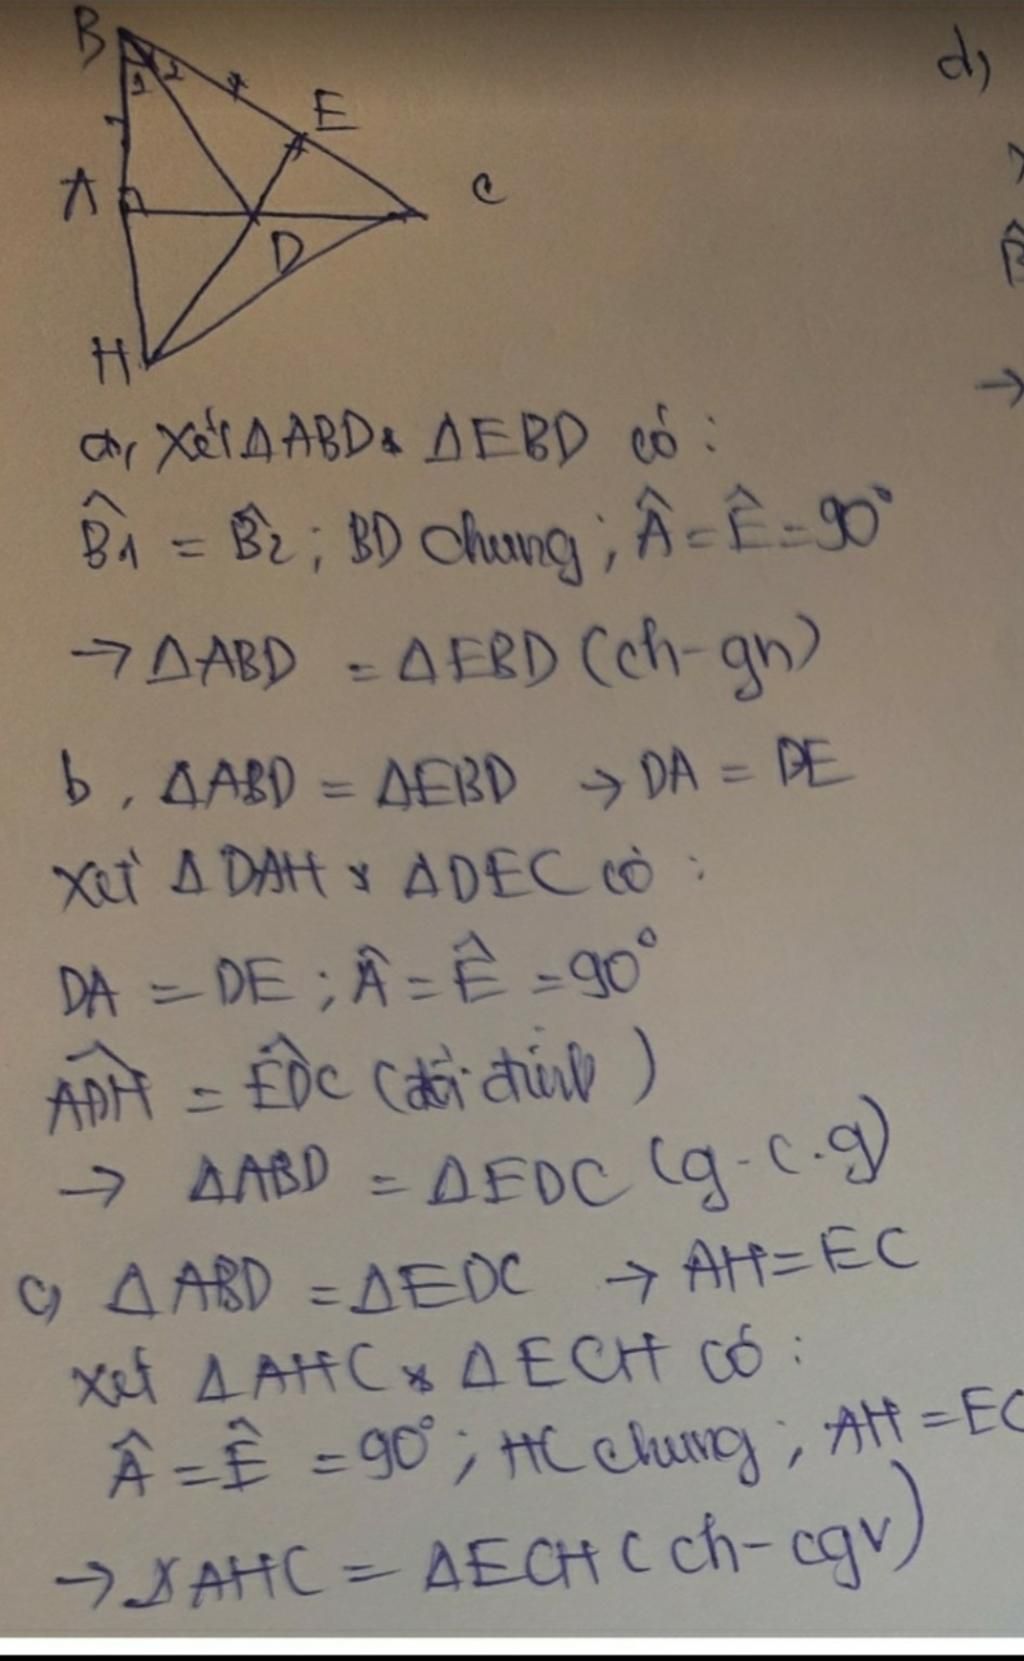 B
1 2
E
A
C
D
H
d)
a, Xét ΔABD & ΔEBD có :
B̂1 = B̂2 ; BD chung ; Â = Ê = 90°
→ ΔABD = ΔEBD (ch-gn)
b, ΔABD = ΔEBD → DA = DE
Xét ΔDAH & ΔDEC có :
DA = DE ; Â = Ê = 90°
ADH = EDC (đối đỉnh)
→ ΔABD = ΔEDC (g-c.g)
c, ΔABD = ΔEDC → AH = EC
Xét ΔAHC & ΔECH có :
Â = Ê = 90° ; HC chung ; AH = EC
→ ΔAHC = ΔECH (ch-cgv)